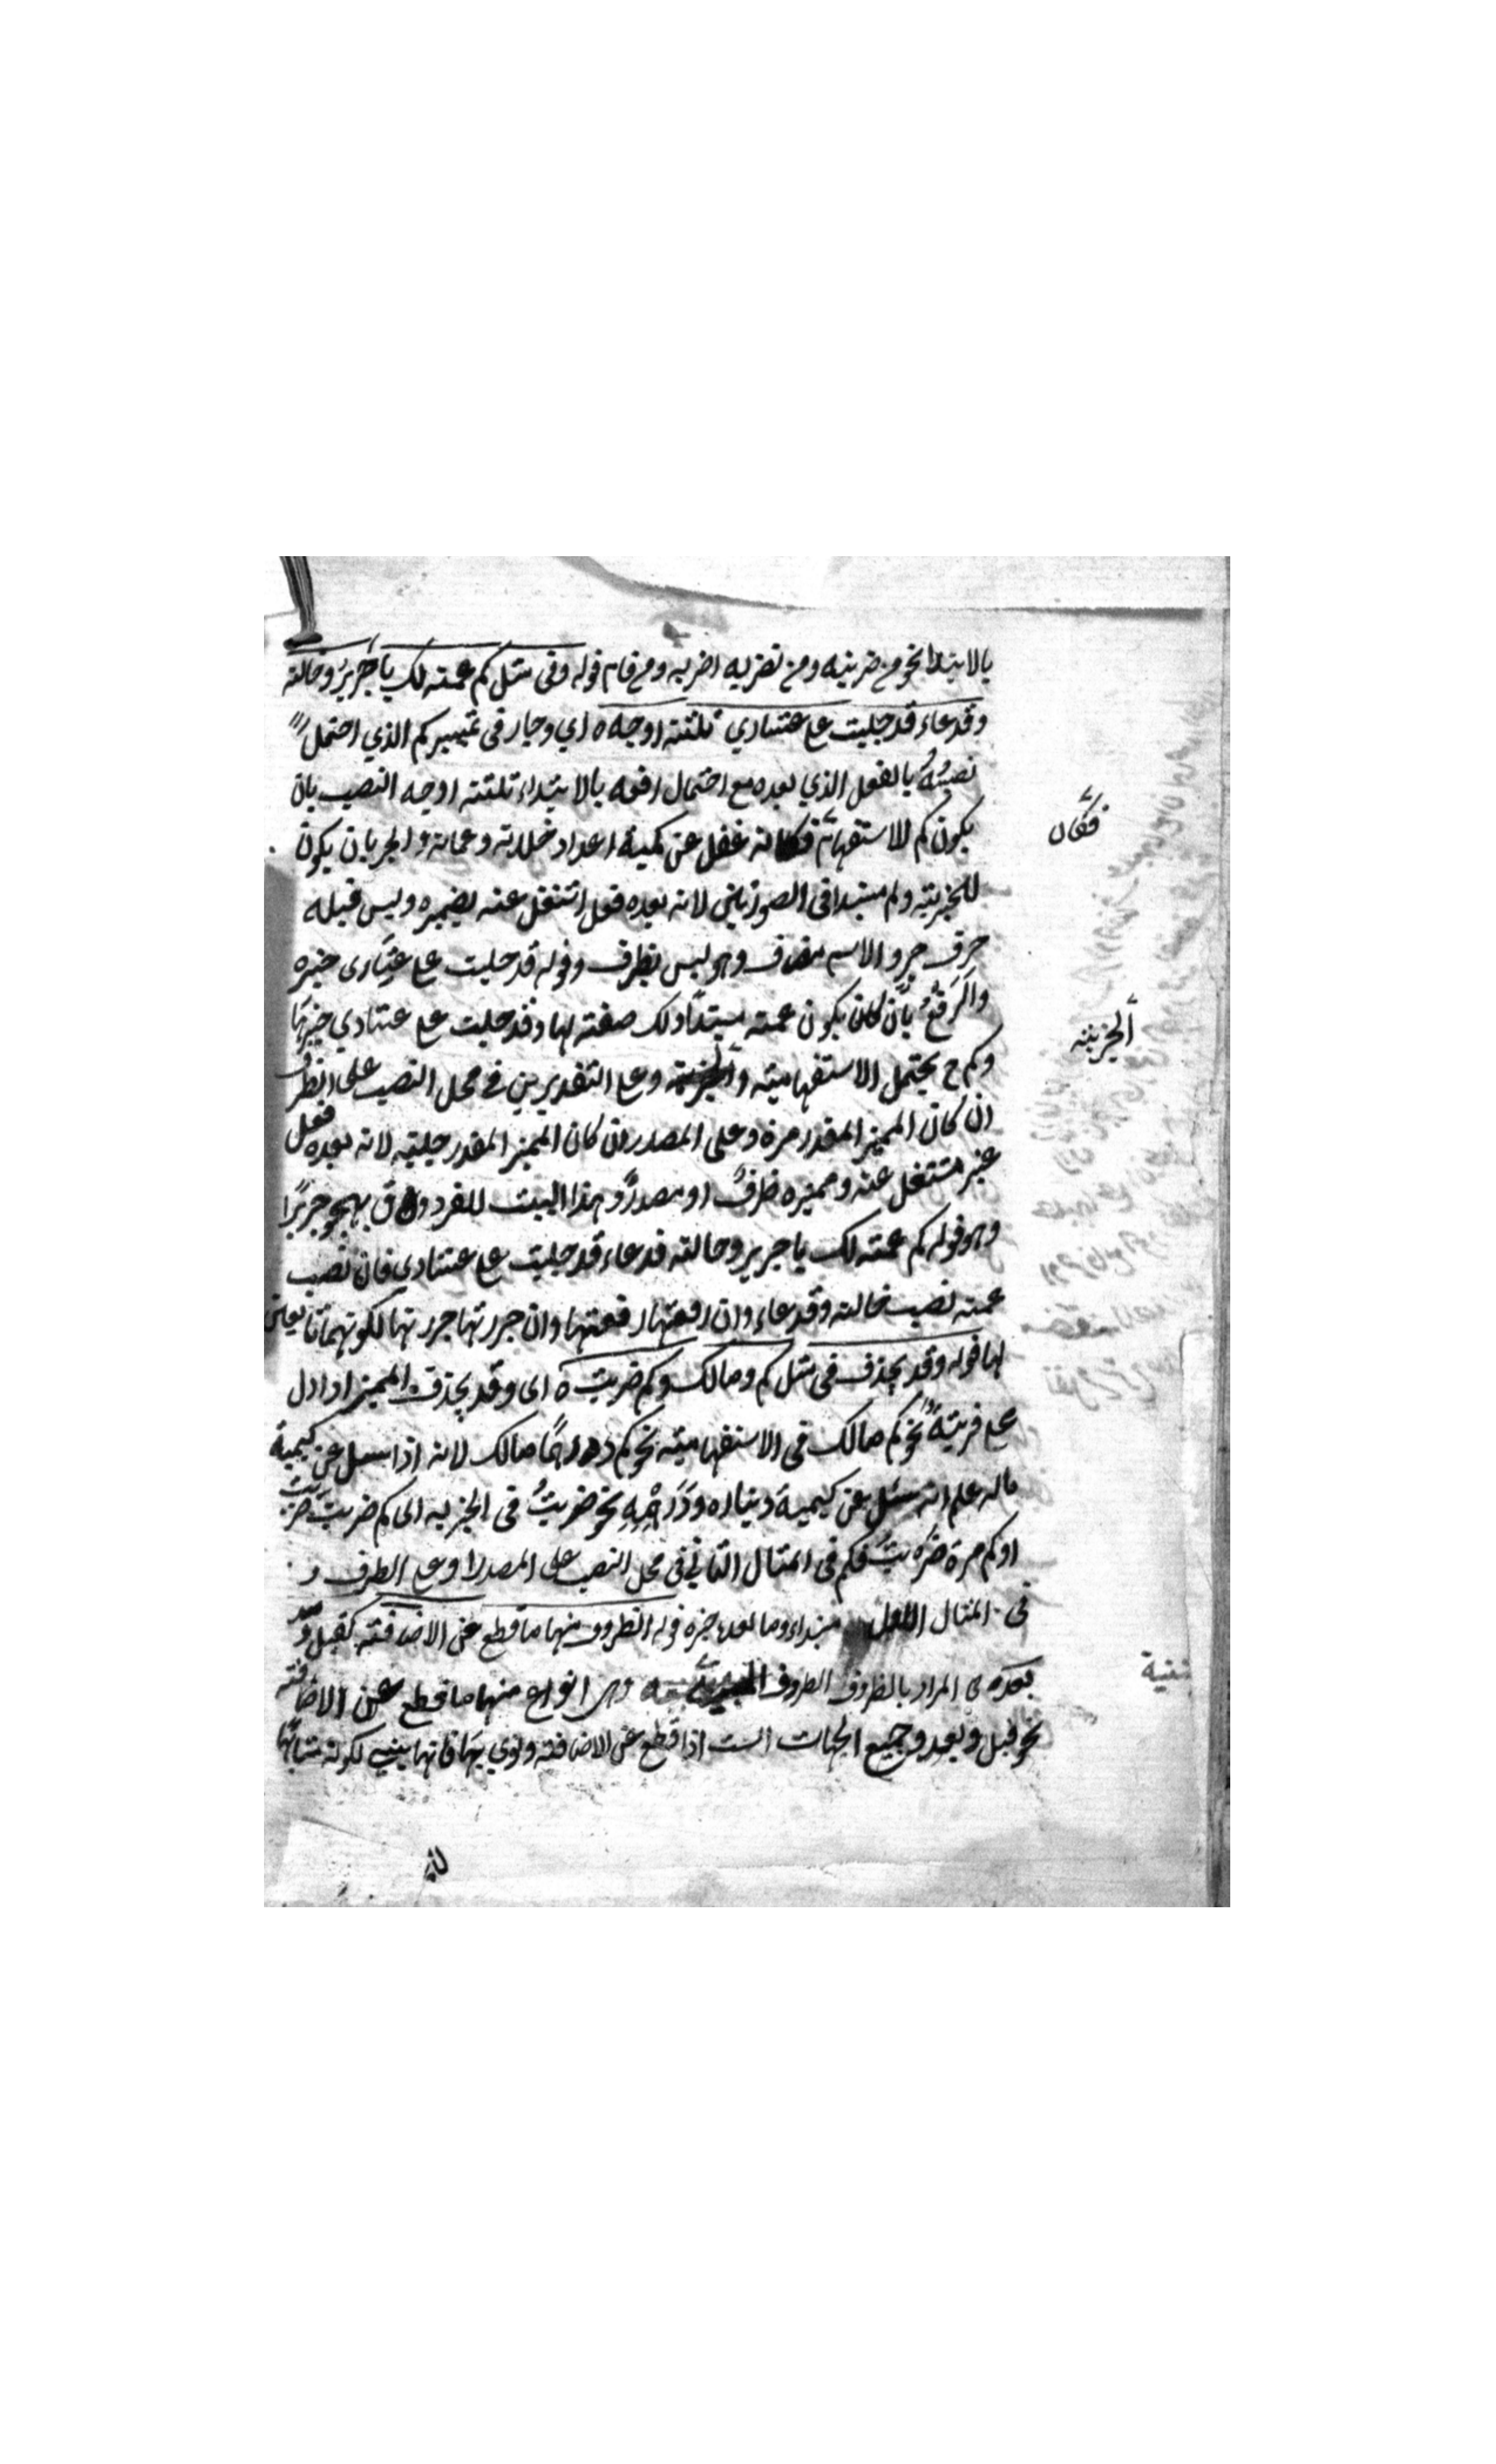 بالابتداء نحو من ضربته ومن تضربه اضربه ومن قام قوله وفى مثل كم عمته لك يا جرير وخالته
وقدعاء قد حلبت على عشاري ثلثة اوجه ه اي وجاز فى تمييز كم الذي احتمل
نصبه بالفعل الذي بعده مع احتمال رفعه بالابتداء ثلثة اوجه النصب بان
يكون كم للاستفهام فكانه غفل عن كمية اعداد خلاته وعماته والجر بان يكون
فكان
للخبرية وكم مبتدا فى الصورتين لانه بعده فعل اشتغل عنه بضميره وليس قبله
حرف جر والاسم مضاف وهو ليس بظرف وقوله قد حلبت على عشارى خبره
والرفع بان كان يكون عمته مبتدأ ولك صفته لها وقد حلبت على عشاري خبرها
الخبرية
وكم ح يحتمل الاستفهامية والخبرية وعلى التقديرين فى محل النصب على الظرف
ان كان المميز المقدر مرة وعلى المصدر ان كان المميز المقدر حلبة لانه بعده فعل
غير مشتغل عنه ومميزه ظرف او مصدر وهذا البيت للفرزدق يهجو جريرا
وهو قوله كم عمته لك يا جرير وخالته فدعاء قد حلبت على عشارى فان نصب
عمته نصب خالته وفدعاء وان رفعتها رفعتهما وان جررتها جررتهما لكونهما تابعين
لها قوله وقد يحذف فى مثل كم ومالك وكم ضربت ه اى وقد يحذف المميز اذا دل
على قرينة نحو كم مالك فى الاستفهامية نحو كم درهما مالك لانه اذا سئل عن كمية
ماله علم انه سئل عن كمية دنياره ودراهمه نحو ضربت فى الخبرية اى كم ضربت ضربت
او كم مرة ضربت فكم فى المثال الثاني فى محل النصب على المصدر او على الظرف و
فى المثال الاول مبتداء وما بعده خبره قوله الظروف منها ما قطع عن الاضافته كقبل وبعد
بعده ى المراد بالظروف الظروف وهى انواع منها ما قطع عن الاضافته
نحو قبل وبعد وجميع الجهات الست اذا قطع عن الاضافته ونوي بها فانها يبنى لكونه مشابها